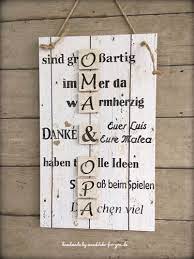 sind grOßartig
imMer da
wArmherzig
Euer Luis
DANKE & Eure Malea
haben tOlle Ideen
SPaß beim Spielen
LAchen viel
handmade by